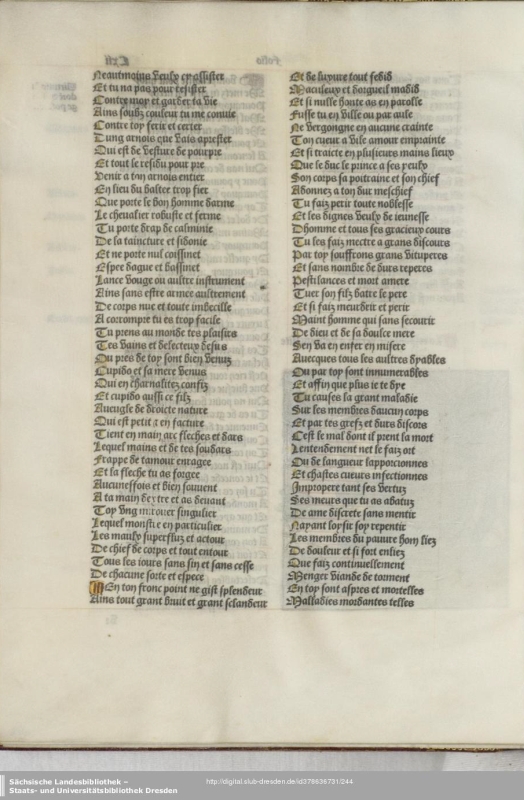 Neautmoins veulx cy assister
Et tu nas pas pour resister
Contre moy et garder ta vie
Ains soubz couleur tu me conuie
Contre toy ferir et certer
Dung arnois que vais aprester
Qui est de vesture de pourpre
Et tout le residu pour pre
Venir a ton arnois entier
En lieu du baltee trop fier
Que porte le bon homme darme
Le cheualier robuste et ferme
Tu porte drap de calminie
De la taincture et sidonie
Et ne porte nul coissinet
Espee dague et bassinet
Lance vouge ou aultre instrument
Ains sans estre armee aultrement
De corps nue et toute imbecille
A corrompre tu es trop facile
Tu prens au monde tes plaisirs
Tes vains et delecteux desirs
Ou pres de toy sont bien venuz
Cupido et sa mere venus
Qui en charnalitez confiz
Et cupido aussi ce filz
Aueugle de droicte nature
Qui est petit et en facture
Tient en main arc fleches et dars
Lequel mains et de tes souldars
Frappe de tamour enragee
Et la fleche tu as forgee
Aucuneffois et bien souuent
A ta main dextre et as deuant
Toy vng mirouer singulier
Lequel monstre en particulier
Les maulx superfluz et actour
De chief de corps et tout entour
Tous les iours sans fin et sans cesse
De chacune sorte et espece
En ton fronc point ne gist splendeur
Ains tout grant bruit et grant sclandeur
Et de luxure tout fedid
Maculeux et dorgueil madid
Et si nulle honte as en parolle
Fusse tu en ville ou par aule
Ne vergongne en aucune crainte
Ton cueur a vile amour emprainte
Et si traicte en plusieurs mains lieux
Que le duc le prince a ses yeulx
Son corps sa poitraine et son chief
Adonnez a ton dur meschief
Tu faiz perir toute noblesse
Et les dignes veulx de ieunesse
Dhomme et tous ses gracieux cours
Tu les faiz mectre a grans discours
Par toy souffrons grans vituperes
Et sans nombre de durs reperes
Pestilances et mort amere
Tuer son filz batre le pere
Et si faiz meurdrir et perir
Maint homme qui sans secourir
De dieu et de sa doulce mere
Sen va en enfer en misere
Auecques tous les aultres dyables
Ou par toy sont innumerables
Et affin que plus ie te dye
Tu causes la grant maladie
Sur les membres daucun corps
Et par tes grefz et durs discors
Cest le mal dont il prent la mort
Lentendement net le faiz ort
Ou de langueur lapporcionnes
Et chastes cueurs infectionnes
Impropere tant ses vertuz
Ses meurs que tu as abatuz
De ame discrete sans mentir
Nayant loysir soy repentir
Les membres du pauure hom liez
De douleur et si fort enliez
Que faiz continuellement
Menger viande de torment
En toy sont aspres et mortelles
Malladies mordantes telles
Sächsische Landesbibliothek –
Staats- und Universitätsbibliothek Dresden
http://digital.slub-dresden.de/id378636731/244